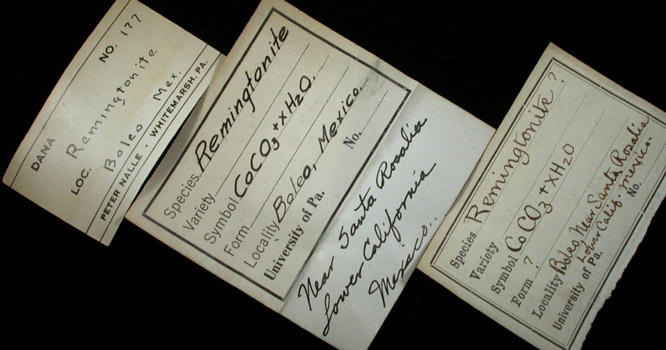 DANA NO. 177
Remingtonite
LOC. Boleo Mex.
PETER NALLE - WHITEMARSH, PA.
Species Remingtonite
Variety
Symbol CoCO3 + xH2O.
Form
Locality Boleo, Mexico.
University of Pa. No.
Near Santa Rosalia
Lower California
Mexaco..
Species Remingtonite?
Variety
Symbol CoCO3 + XH2O
Form ?
Locality Boleo Near Santa Rosalia
Lower Calif. Mexico.
University of Pa. No.